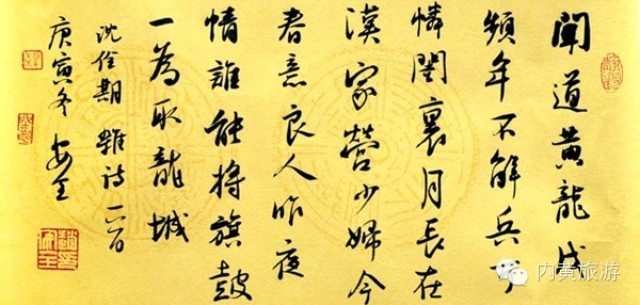 聞道黃龍戍
頻年不解兵可
憐閨裏月長在
漢家營少婦今
春意良人昨夜
情誰能將旗鼓
一為取龍城
沈佺期 雜詩一首
庚寅冬
内黄旅游